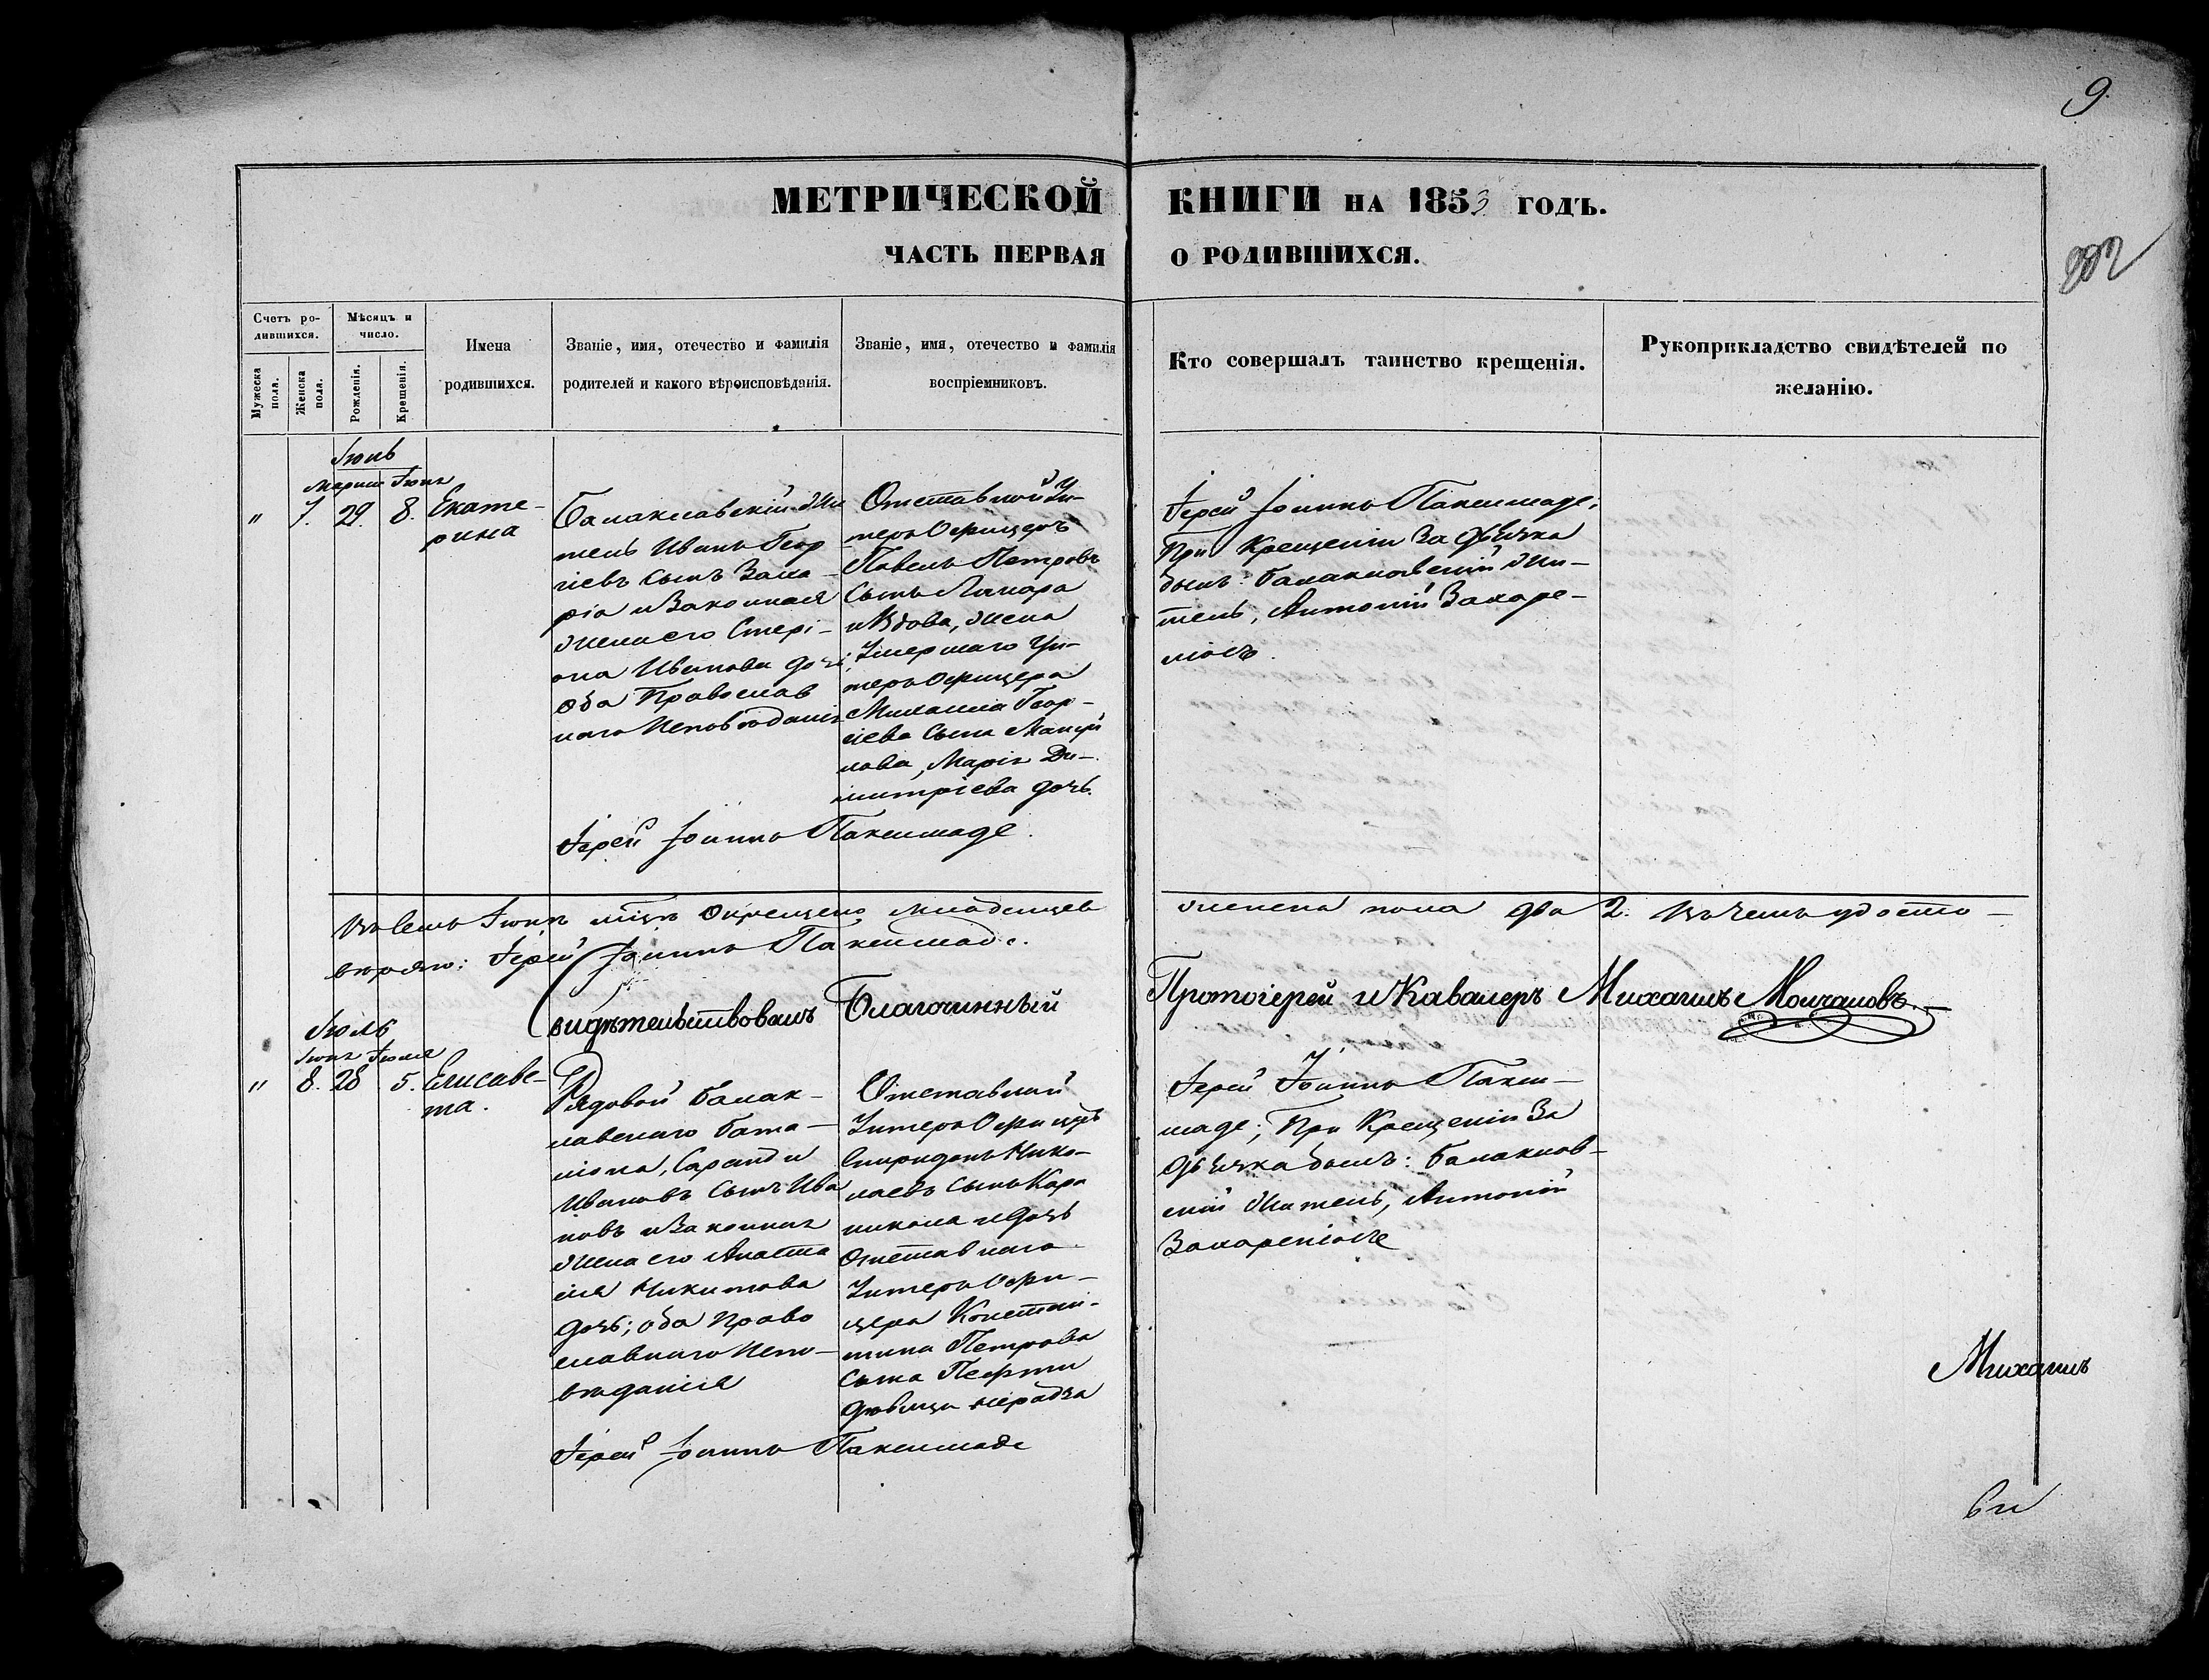 9.
МЕТРИЧЕСКОЙ КНИГИ НА 1853 ГОДЪ.
ЧАСТЬ ПЕРВАЯ О РОДИВШИХСЯ.
Счетъ ро-
дившихся.
Мужеска
пола.
Женска
пола.
Мѣсяцъ и
число.
Рожденія.
Крещенія.
Имена
родившихся.
Званіе, имя, отечество и фамилія
родителей и какого вѣроисповѣданія.
Званіе, имя, отечество и фамилія
воспріемниковъ.
Кто совершалъ таинство крещенія.
Рукоприкладство свидѣтелей по
желанію.
Іюнь
Марта Іюня
" 7. 29. 8.
Екате-
рина
Балаклавскій Жи
тель Иванъ Геор
гіевъ Сынъ
и Законная
Жена его
Иванова дочь
оба Православ
наго Исповѣданія
Отставной Ун-
теръ Офицеръ
Павелъ Петровъ
Сынъ
и Вдова, Жена
Умершаго Ун-
теръ Офицера
Михаила Геор-
гіева Сына
Марія Ди-
митріева дочь.
Іерей Іоаннъ Паксимаде.
Іерей Іоаннъ Паксимаде;
При Крещеніи За Дьячка
былъ: Балаклавскій Жи-
тель, Антоній
Въ семъ Іюнѣ мцѣ Окрещено младенцев женска пола два 2. Въ чемъ удосто-
вѣряю: Іерей Іоаннъ Паксимаде.
Свидѣтельствовалъ Благочинный Протоіерей и Кавалеръ Михаилъ Молчановъ.
Іюль
Іюня Іюля
" 8. 28 5.
Елисаве-
та.
Рядовой Балак-
лавскаго Бата-
ліона, Саранди
Ивановъ Сынъ Ива
новъ и Законная
Жена его Анаста
сія Никитова
дочь; оба Право
славнаго Испо-
вѣданія
Отставной
Унтеръ Офицеръ
Спиридонъ Нико-
лаевъ Сынъ Кара
никола и дочь
Отставнаго
Унтеръ Офи-
цера Констан-
тина Петрова
Сына
дѣвица
Іерей Іоаннъ Паксимаде
Іерей Іоаннъ Пакси-
маде; При Крещеніи За
Дьячка былъ: Балаклав-
скій Житель, Антоній
Михаилъ